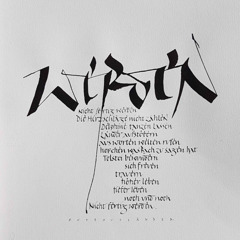 Nicht fertig werden
Die Herzschläge nicht zählen
Delphine tanzen lassen
Länder aufstöbern
aus Worten Welten rufen
horchen was Bach zu sagen hat
Tolstoi bewundern
sich freuen
trauern
höher leben
tiefer leben
noch und noch
Nicht fertig werden